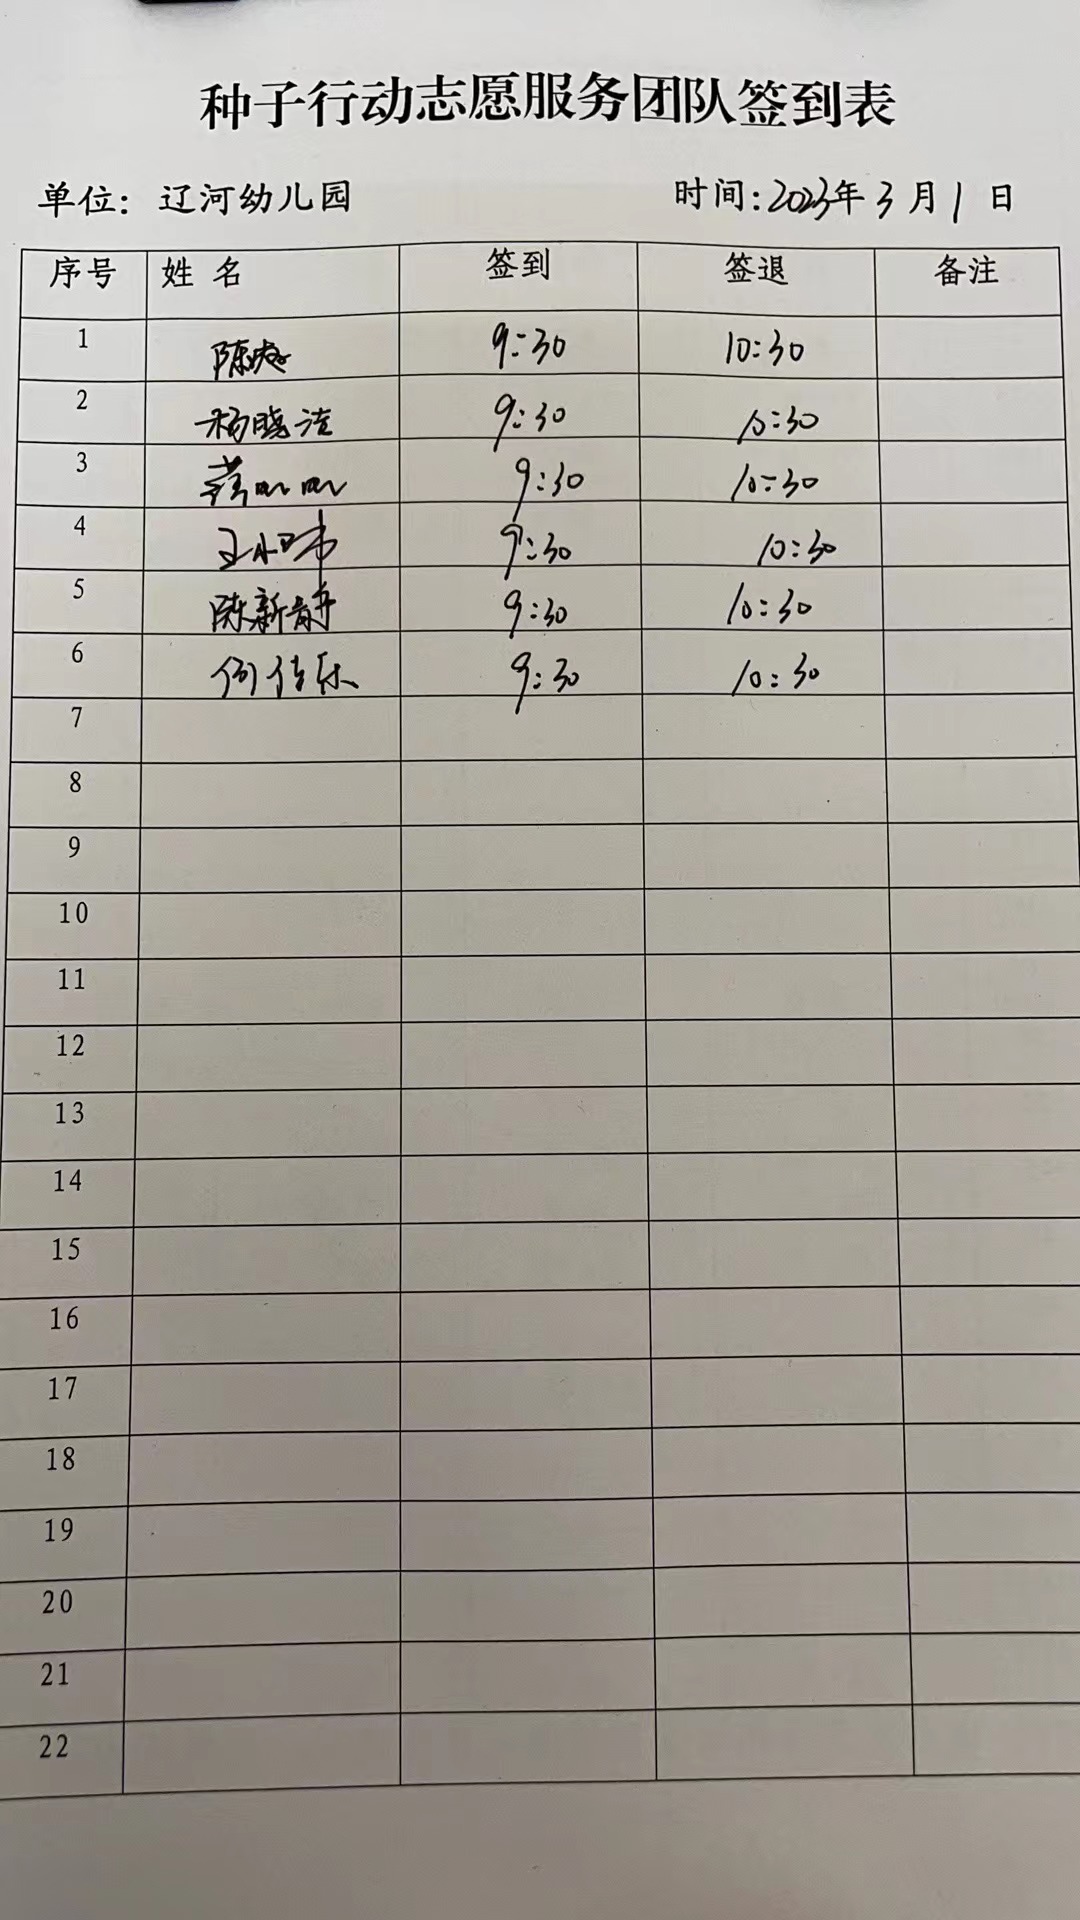 种子行动志愿服务团队签到表
单位：辽河幼儿园 时间：2023年3月1日
序号 姓名 签到 签退 备注
1 9:30 10:30
2 杨晓洁 9:30 10:30
3 9:30 10:30
4 王小玮 9:30 10:30
5 陈新静 9:30 10:30
6 何佳乐 9:30 10:30
7
8
9
10
11
12
13
14
15
16
17
18
19
20
21
22